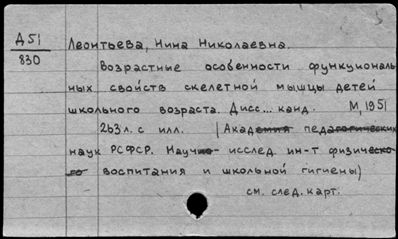 Д51
830
Леонтьева, Нина Николаевна.
Возрастные особенности функциональ-
ных свойств скелетной мышцы детей
школьного возраста. Дисс... канд. М, 1951
263 л. с илл. (Академия педагогических
наук РСФСР. Научно- исслед ин-т физическо-
го воспитания и школьной гигиены)
см. след. карт.